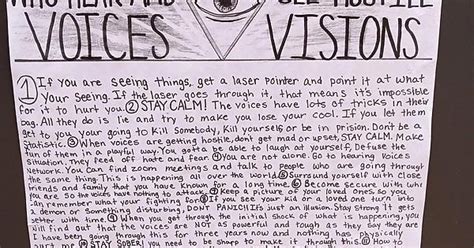 WHO HEAR AND SEE HOSTILE
VOICES VISIONS
① If you are seeing things, get a laser pointer and point it at what
your seeing. If the laser goes through it, that means it's impossible
for it to hurt you. ② STAY CALM! The voices have lots of tricks in their
bag. All they do is lie and try to make you lose your cool. If you let them
get to you your going to kill somebody, kill yourself or be in prision. Dont be a
Statistic. ③ When voices are getting hostile, don't get mad or upset, STAY CALM. Make
fun of them in a playful way. You gotta be able to laugh at yourself, Defuse the
Situation. They feed off hate and fear. ④ You are not alone. Go to hearing Voices
Network. You can find zoom meetings and talk to people who are going through
the same thing. This is happening all over the world. ⑤ Surround yourself with close
friends and family that you have known for a long time. ⑥ Become secure with who
you are so the voices have nothing to attack. ⑦ Keep a picture of your loved ones so you
can remember what your fighting for. ⑧ If you see your Kid or a loved one turn into
a demon or something disturbing DONT PANIC! It's just an illusion. Stay strong it gets
better with time. ⑨ When you get through the initial shock of what is happening, you
will find out that the voices are not as powerful and tough as they say they are
I have been going through this for three years now and nothing has physically
hurt me. ⑩ STAY SOBER! you need to be sharp to make it through this. How to